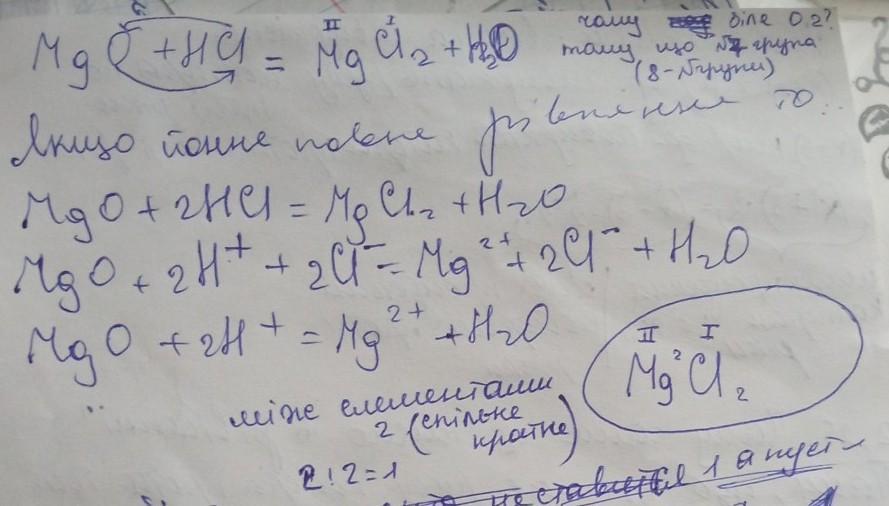 MgO + HCl = Mg^II Cl^I ₂ + H₂O
чому біля O 2?
тому що VI група
(8 - № групи)
Якщо йонне повне рівняння то..
MgO + 2HCl = MgCl₂ + H₂O
MgO + 2H⁺ + 2Cl⁻ = Mg²⁺ + 2Cl⁻ + H₂O
MgO + 2H⁺ = Mg²⁺ + H₂O
II I
Mg ² Cl₂
між елементами
2 (спільне
кратне)
2:2=1
не ставиться 1 а пуст